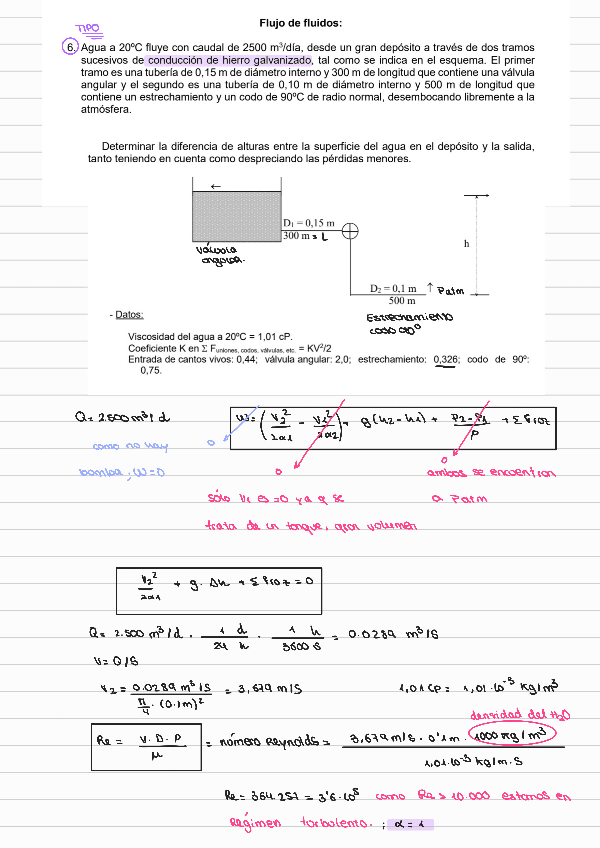 Flujo de fluidos:
TIPO
6. Agua a 20ºC fluye con caudal de 2500 m³/día, desde un gran depósito a través de dos tramos
sucesivos de conducción de hierro galvanizado, tal como se indica en el esquema. El primer
tramo es una tubería de 0,15 m de diámetro interno y 300 m de longitud que contiene una válvula
angular y el segundo es una tubería de 0,10 m de diámetro interno y 500 m de longitud que
contiene un estrechamiento y un codo de 90ºC de radio normal, desembocando libremente a la
atmósfera.
Determinar la diferencia de alturas entre la superficie del agua en el depósito y la salida,
tanto teniendo en cuenta como despreciando las pérdidas menores.
D₁ = 0,15 m
300 m = L
válvula
angular.
h
D₂ = 0,1 m ↑ Patm
500 m
Estrechamiento
codo 90º
- Datos:
Viscosidad del agua a 20ºC = 1,01 cP.
Coeficiente K en Σ Funiones, codos, válvulas, etc. = KV²/2
Entrada de cantos vivos: 0,44; válvula angular: 2,0; estrechamiento: 0,326; codo de 90º:
0,75.
Q = 2.500 m³/d
W = (V₂²/2α1 - V₁²/2α2) + g(h2 - h1) + P2 - P1/ρ + Σ Froz
como no hay
0
bomba; W = 0
0
0
ambos se encuentran
sólo V₁ es = 0 ya q se
a Patm
trata de un tanque, gran volumen
V₂²/2α1 + g · Δh + Σ Froz = 0
Q = 2.500 m³/d · 1 d/24 h · 1 h/3600 s = 0.0289 m³/s
V = Q/S
V₂ = 0.0289 m³/s / π/4 · (0.1m)² = 3,679 m/s
1,01 cP = 1,01·10⁻³ kg/m³
densidad del H2O
Re = V · D · ρ / μ = número Reynolds = 3,679 m/s · 0'1m · 1000 kg/m³ / 1,01·10⁻³ kg/m·s
Re = 364.257 = 3'6·10⁵ como Re > 10.000 estamos en
Régimen turbulento. ; α = 1